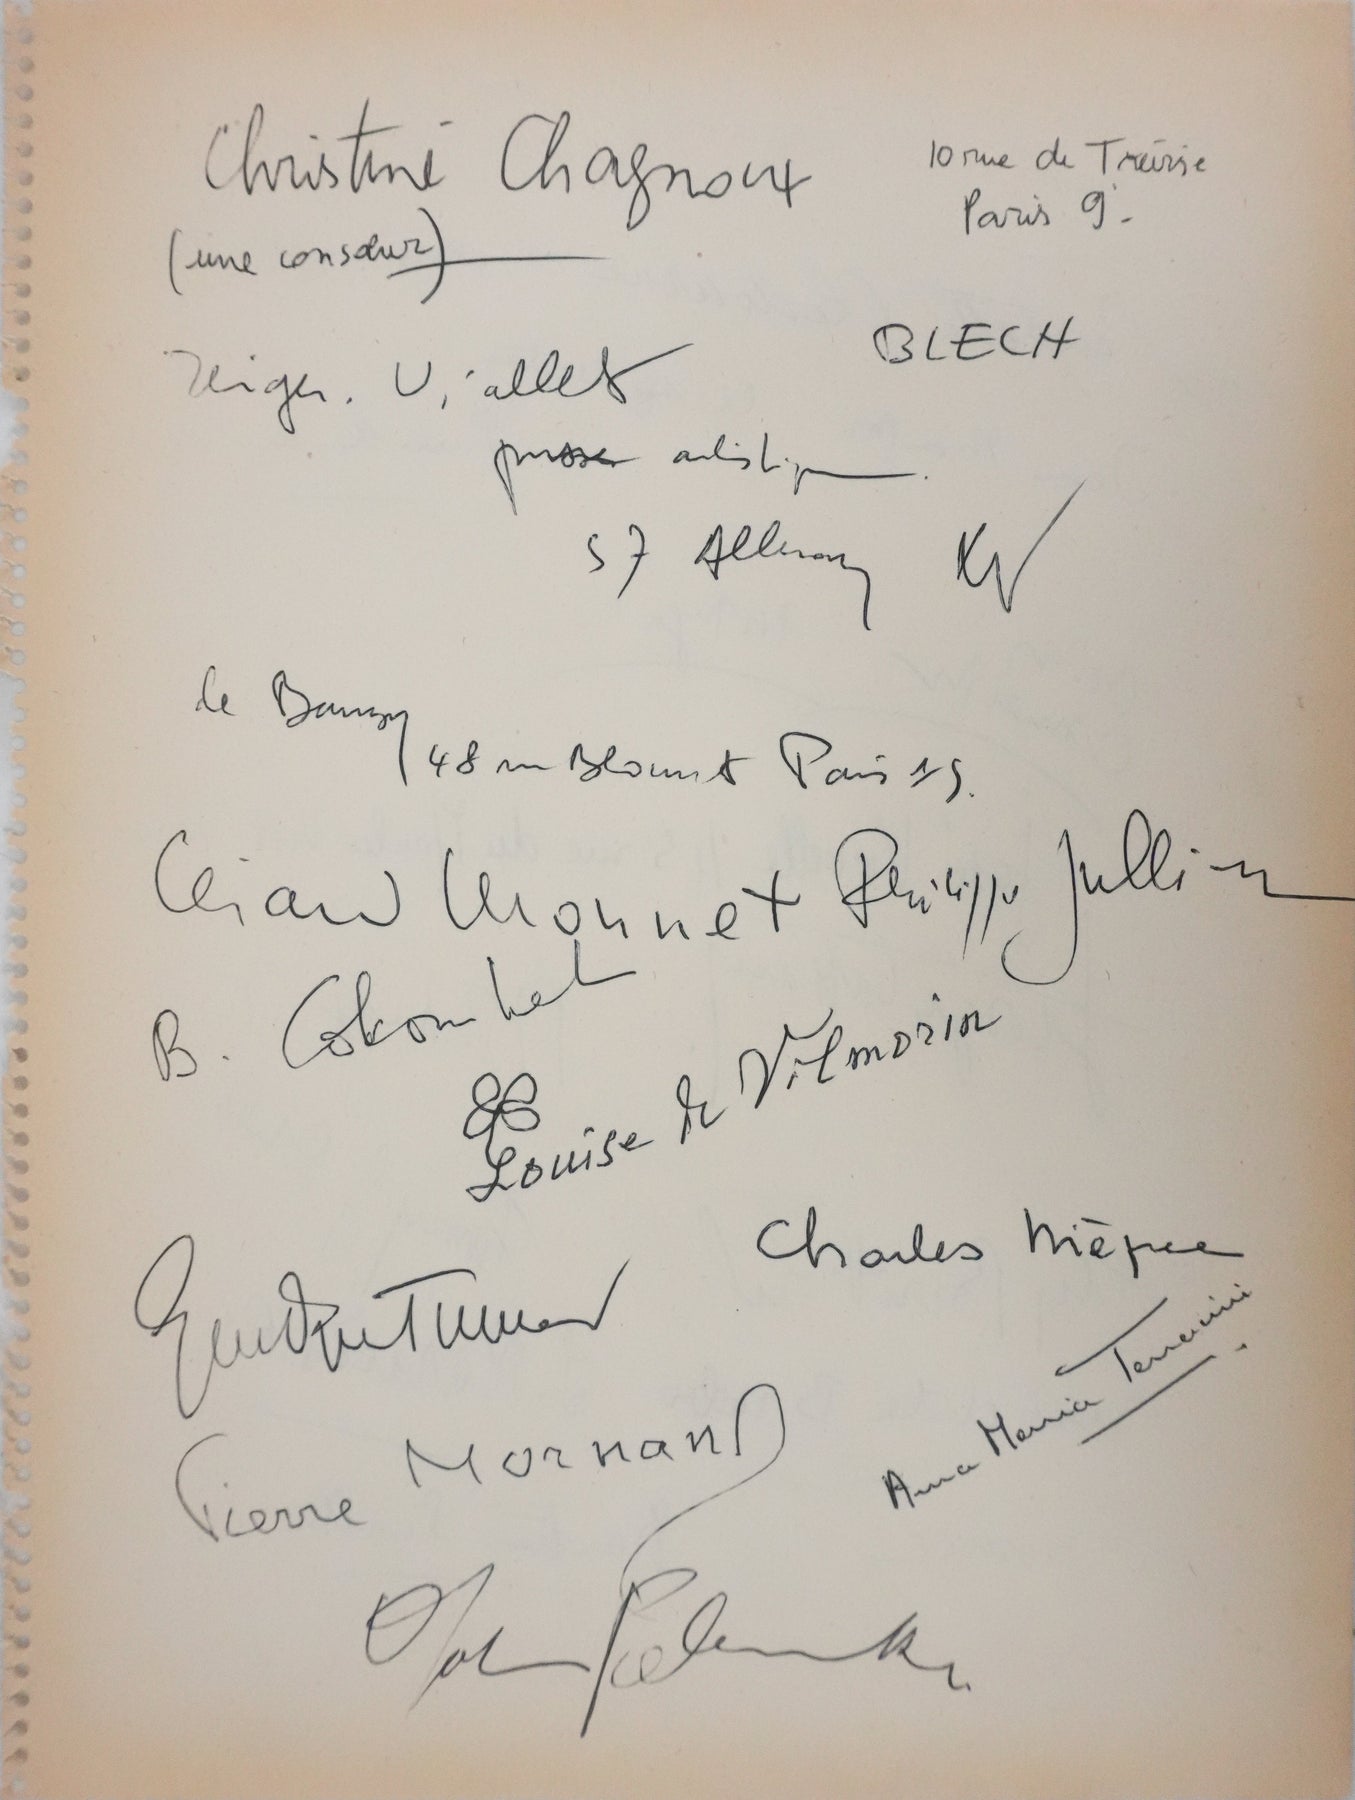 Christine Chagnoux
10 rue de Trévise
Paris 9e.
(une consœur)
BLECH
Viallet
presse artistique.
57 Alleray XV
de
48 rue Blomet Paris 15.
Gérard Monnet
Philippe Jullian
B. Colombel
Louise de Vilmorin
Charles Nièpce
Anna Maria Terracini
Pierre Mornand